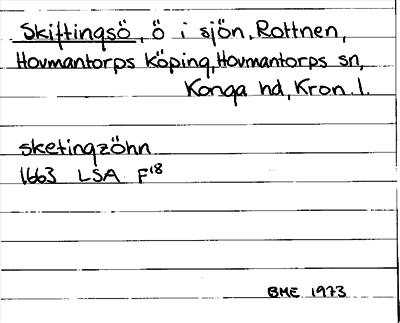 Skiftingsö, ö i sjön, Rottnen,
Hovmantorps köping, Hovmantorps sn,
Konga hd, Kron. l.
sketingzöhn
1663 LSA F18
BME 1973